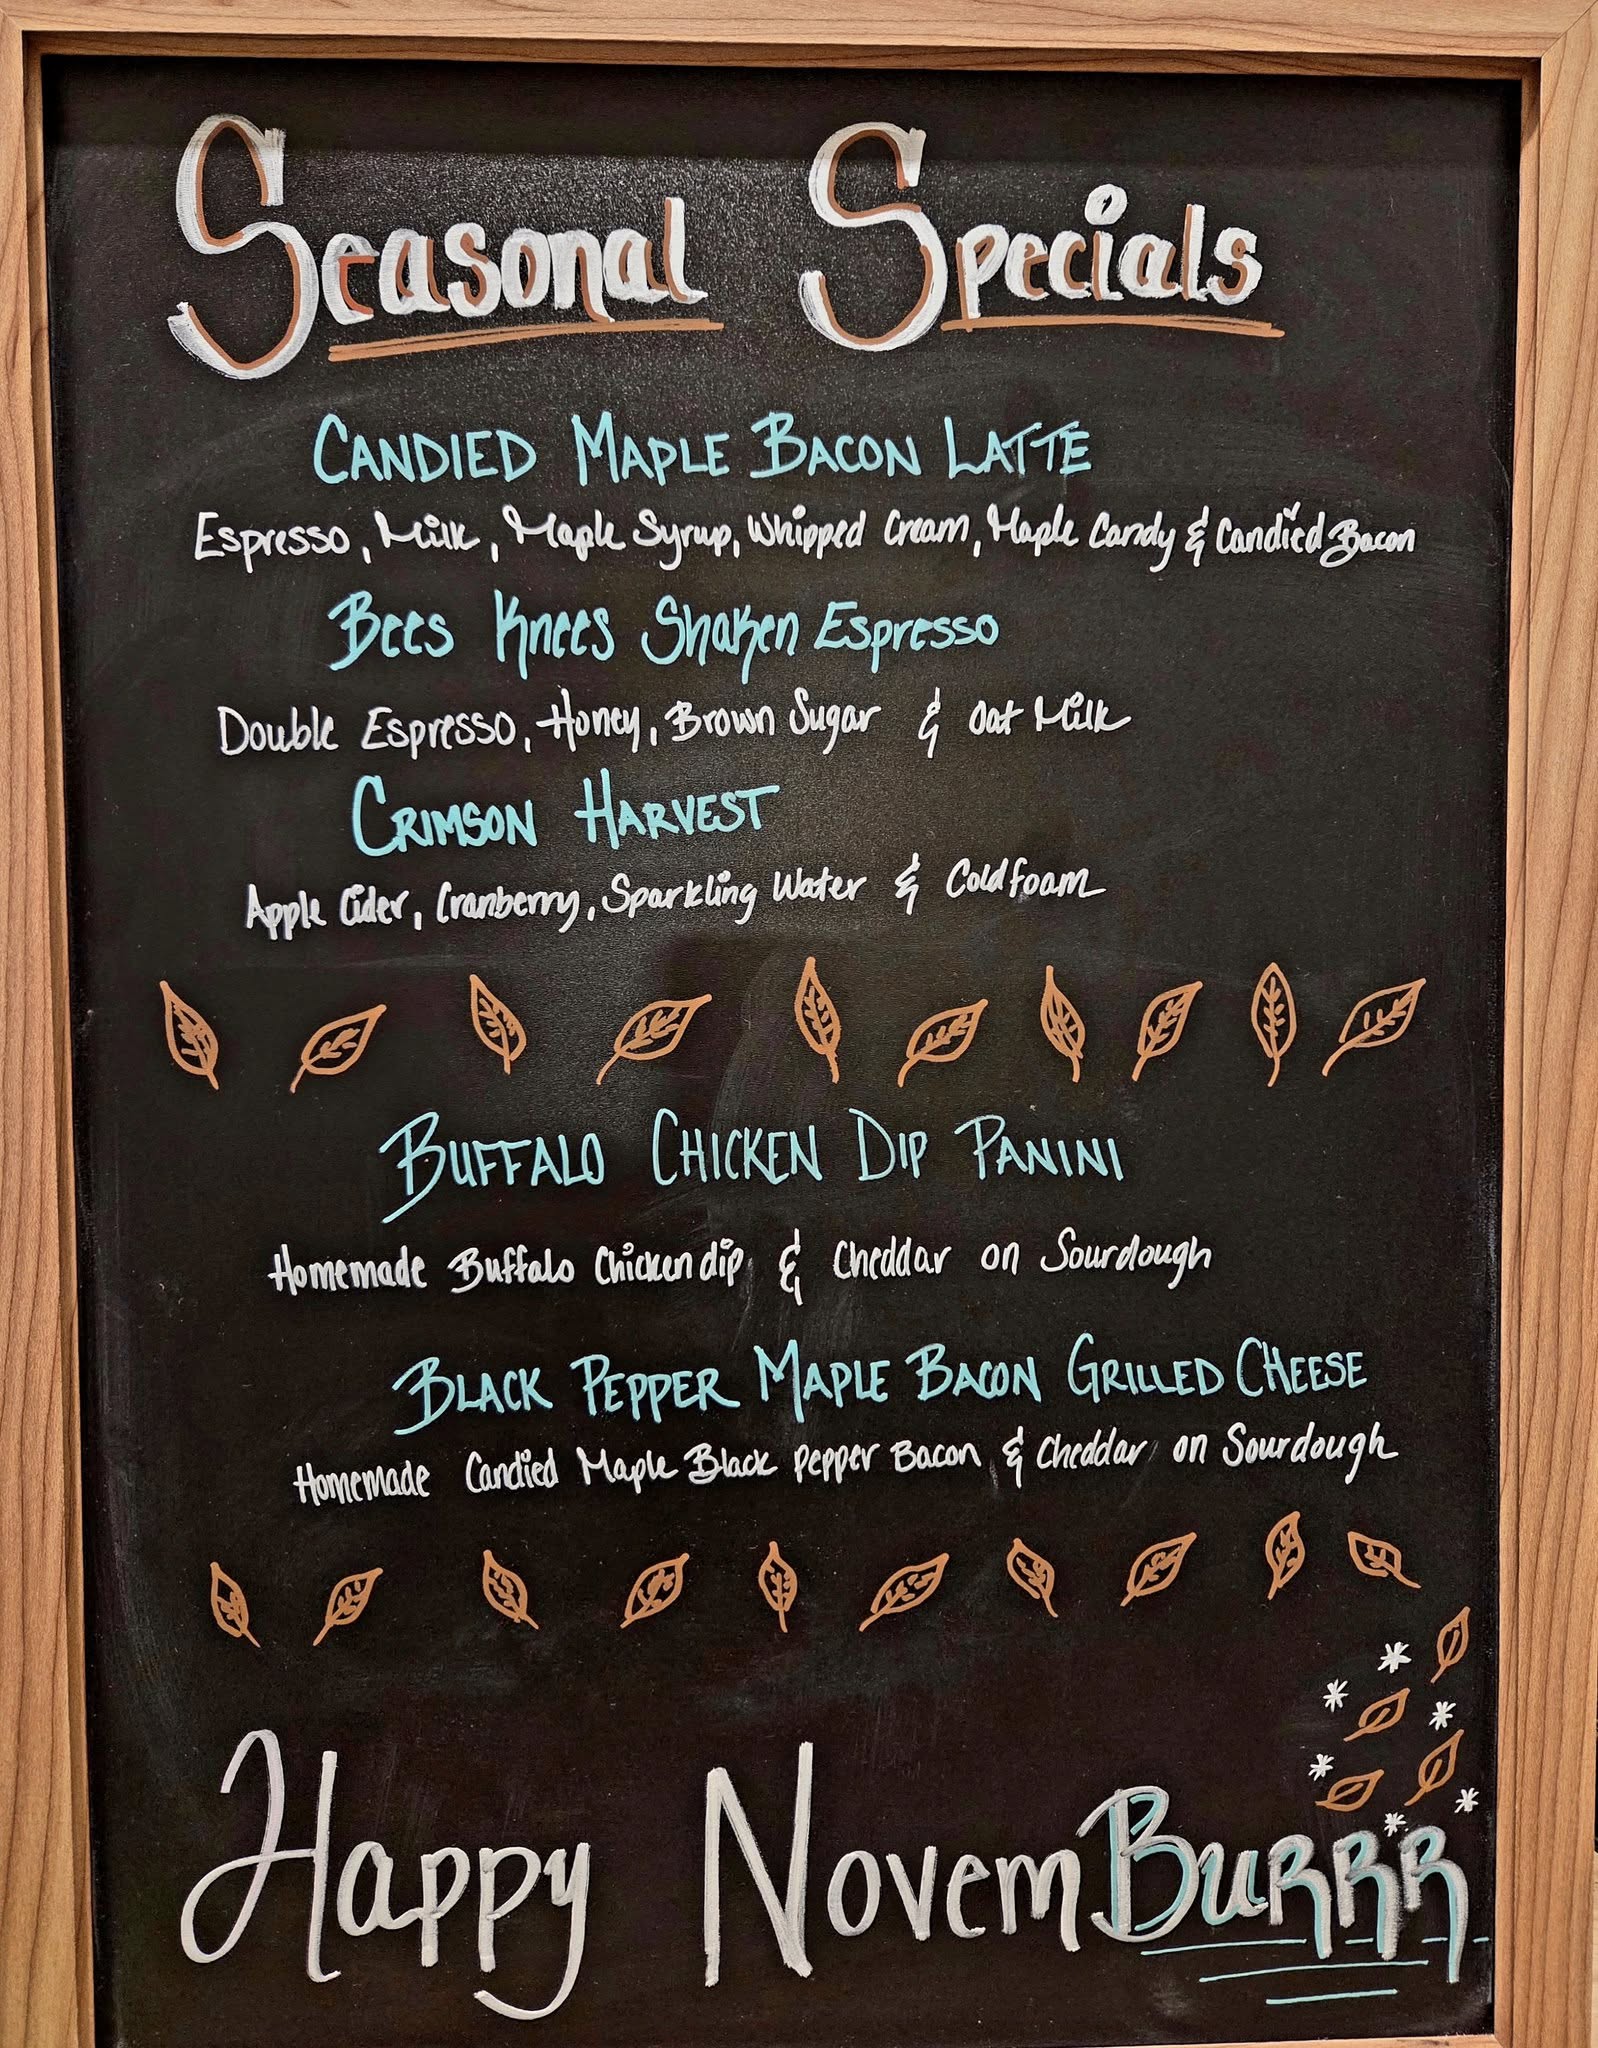 Seasonal Specials
CANDIED MAPLE BACON LATTE
Espresso, Milk, Maple Syrup, Whipped Cream, Maple Candy & Candied Bacon
Bees Knees Shaken Espresso
Double Espresso, Honey, Brown Sugar & Oat Milk
CRIMSON HARVEST
Apple Cider, Cranberry, Sparkling Water & Coldfoam
BUFFALO CHICKEN DIP PANINI
Homemade Buffalo Chicken dip & Cheddar on Sourdough
BLACK PEPPER MAPLE BACON GRILLED CHEESE
Homemade Candied Maple Black Pepper Bacon & Cheddar on Sourdough
Happy NovemBurrr